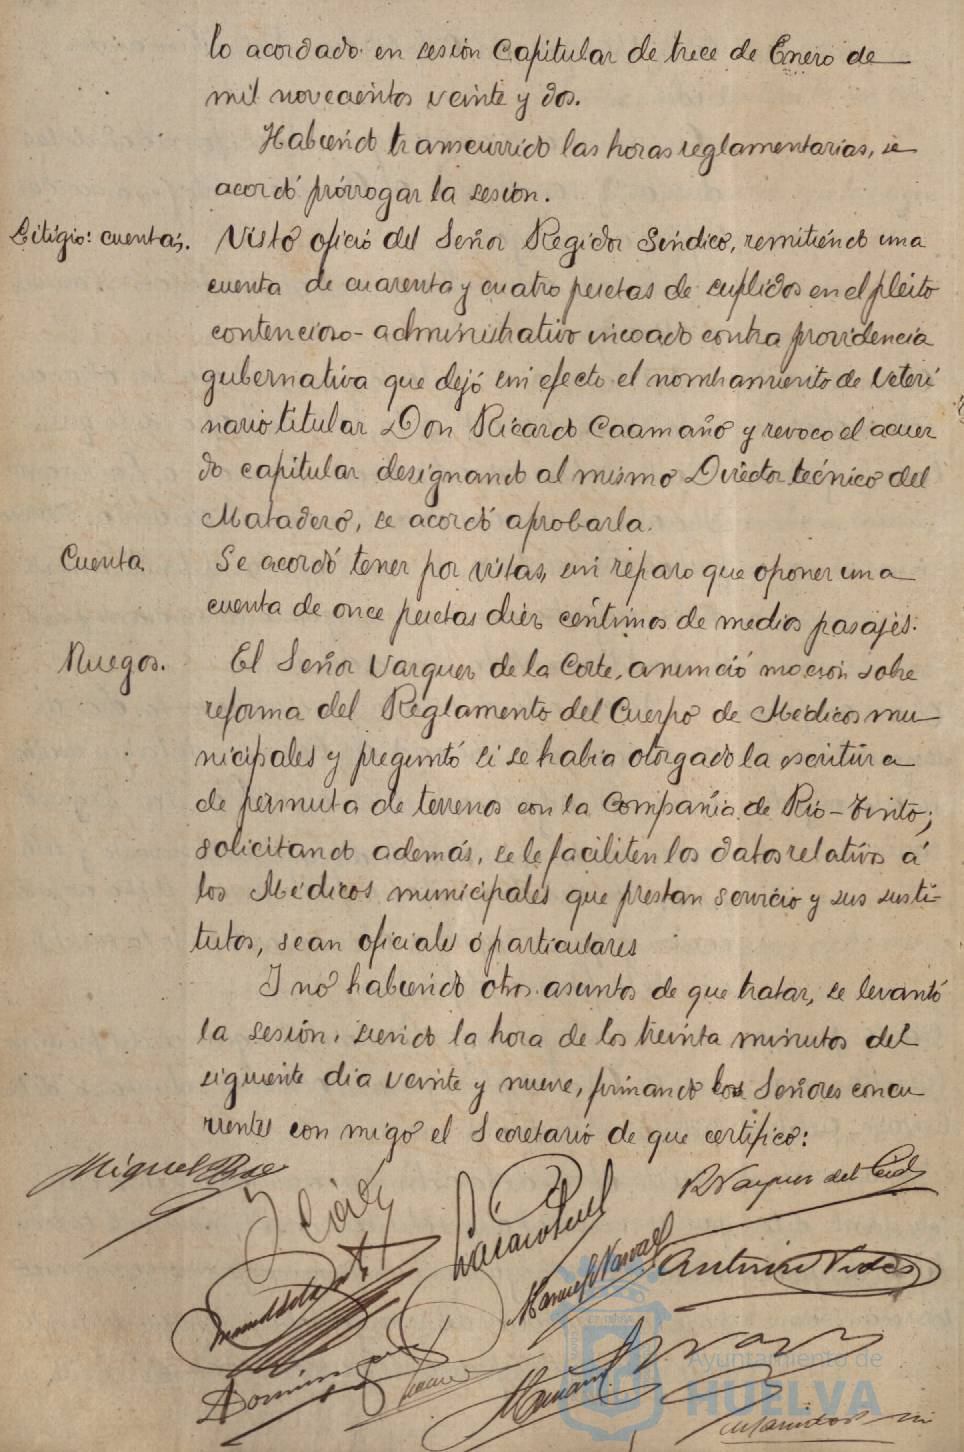 lo acordado en sesión Capitular de trece de Enero de
mil novecientos veinte y dos.
Habiendo transcurrido las horas reglamentarias, se
acordó prórrogar la sesión.
Litigio: cuentas. Visto oficio del Señor Regidor Sindico, remitiendo una
cuenta de cuarenta y cuatro pesetas de suplidos en el pleito
contencioso-administrativo incoado contra providencia
gubernativa que dejó sin efecto el nombramiento de Veteri
nario titular Don Ricardo Caamaño y revoco el acuer
do capitular designando al mismo Director técnico del
Matadero, se acordó aprobarla.
Cuenta. Se acordó tener por vistas, sin reparo que oponer una
cuenta de once pesetas diez centimos de medios pasajes.
Ruegos. El Señor Vazquez de la Corte, anunció moción sobre
reforma del Reglamento del Cuerpo de Médicos mu-
nicipales y preguntó si se habia otorgado la escritura
de permuta de terrenos con la Compañía de Rio-Tinto;
solicitando además, se le faciliten los datos relativos á
los Médicos municipales que prestan servicio y sus susti-
tutos, sean oficiales ó particulares
Y no habiendo otros asuntos de que tratar, se levantó
la sesión, siendo la hora de los treinta minutos del
siguiente dia veinte y nueve, firmando los Señores concu
rrentes con migo el Secretario de que certifico:
Miguel
R Vazquez del
Manuel Narvaez
Antonio Vides
Ayuntamiento de
HUELVA